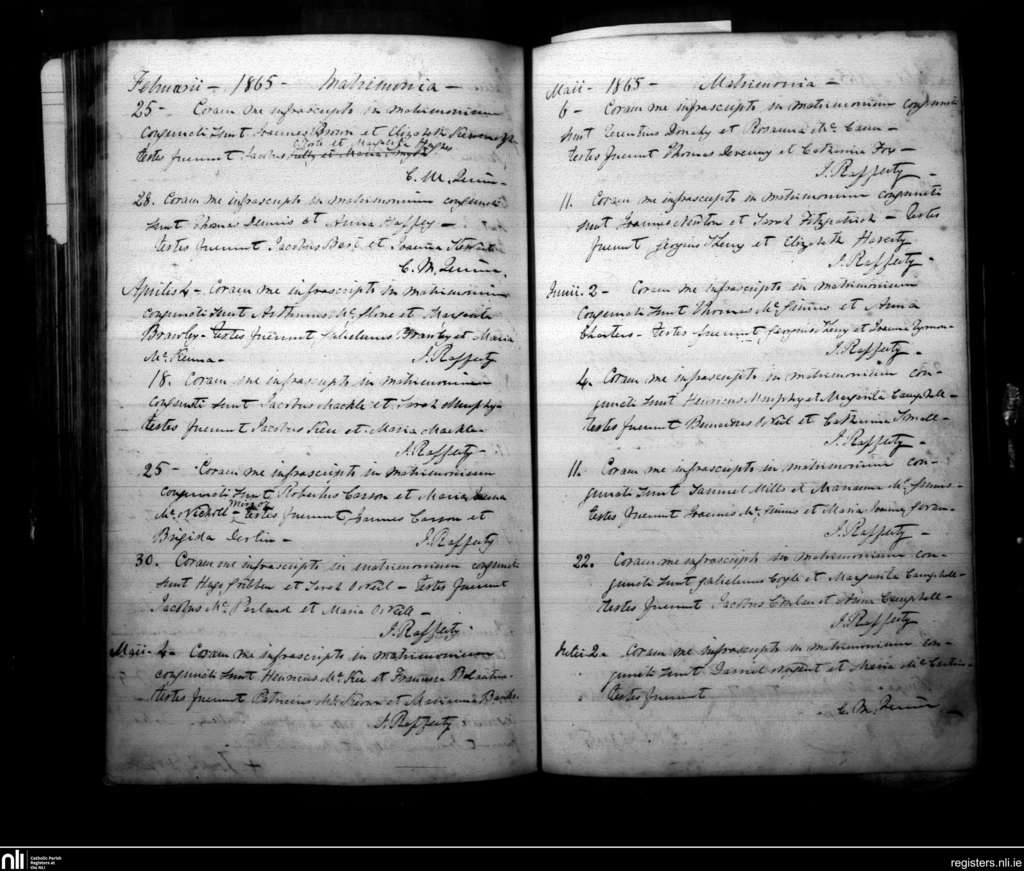 Februarii - 1865 - Matrimonia -
25 - Coram me infrascripto in matrimonium
conjuncti sunt Joannes Brown et Elizabeth
et Margarita Hughes
testes fuerunt Jacobus
C. M. Quinn -
28. Coram me infrascripto in matrimonium conjuncti
sunt Thomas Dennis et Anna Haffey -
testes fuerunt Jacobus et Joanna Stewart
C. M. Quinn.
Aprilis 4 - Coram me infrascripto in matrimonium
conjuncti sunt Arthurus Mc. Stone et Margarita
Brawley - testes fuerunt Gulielmus Brawley et Maria
Mc. Kenna -
J. Rafferty
18. Coram me infrascripto in matrimonium
conjuncti sunt Jacobus Mackle et Sarah Murphy -
testes fuerunt Jacobus Keu et Maria Mackle -
J. Rafferty -
25 - Coram me infrascripto in matrimonium
conjuncti sunt Robertus Carson et Maria
Mc. Nicholl - testes fuerunt James Carson et
Brigida Devlin -
J. Rafferty
30. Coram me infrascripto in matrimonium conjuncti
sunt Hugo Gribben et Sarah O'Neill - testes fuerunt
Jacobus Mc. Parland et Maria O'Neill -
J. Rafferty.
Maii - 4 - Coram me infrascripto in matrimonium
conjuncti sunt Henricus Mc. Kee et Francisca
testes fuerunt Patricius Mc. Keown et Marianna Banks.
J. Rafferty
Maii - 1865 - Matrimonia -
6 - Coram me infrascripto in matrimonium conjuncti
sunt Terentius Donaghy et Rosanna Mc. Cann -
testes fuerunt Thomas Devenny et Catherina Fox -
J. Rafferty -
11. Coram me infrascripto in matrimonium conjuncti
sunt Joannes Newton et Sarah Fitzpatrick - testes
fuerunt Georgius et Elizabeth Hagerty
J. Rafferty -
Junii. 2 - Coram me infrascripto in matrimonium
conjuncti sunt Thomas Mc. Ginnis et Anna
Charters - testes fuerunt Georgius et Joanna
J. Rafferty -
4. Coram me infrascripto in matrimonium con-
juncti sunt Henricus Murphy et Margarita Campbell -
testes fuerunt O'Neil et Catherina Small -
J. Rafferty -
11. Coram me infrascripto in matrimonium con-
juncti sunt Samuel Mills et Marianna Mc. Ginnis -
testes fuerunt Joannes Mc. Ginnis et Maria Joanna
J. Rafferty -
22. Coram me infrascripto in matrimonium con-
juncti sunt Gulielmus Coyle et Margarita Campbell -
testes fuerunt Jacobus et Anna Campbell -
J. Rafferty
Julii 2 - Coram me infrascripto in matrimonium con-
juncti sunt Daniel Nugent et Maria
testes fuerunt
C. M. Quinn -
nli
Catholic Parish
Registers at
the NLI
registers.nli.ie